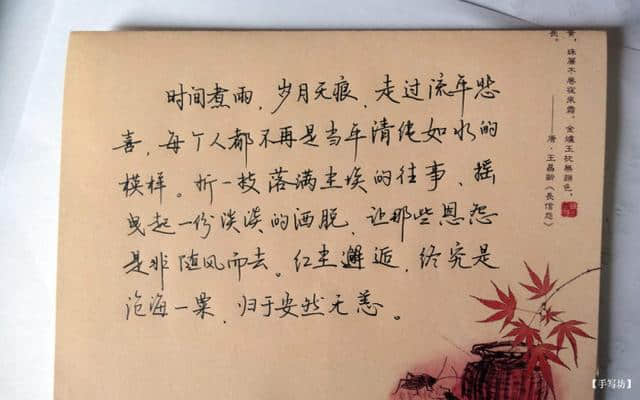 时间煮雨，岁月无痕，走过流年悲
喜，每个人都不再是当年清纯如水的
模样。折一枝落满尘埃的往事，摇
曳起一份淡淡的洒脱，让那些恩怨
是非随风而去。红尘邂逅，终究是
沧海一粟，归于安然无恙。
黄，珠簾不卷夜來霜。金爐玉枕無顏色，
長。
——唐·王昌齡《長信怨》
【手写坊】